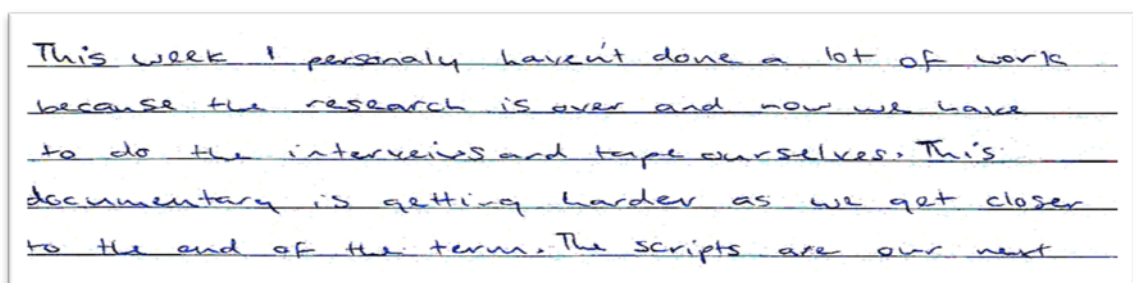 This week I personaly haven't done a lot of work
because the research is over and now we have
to do the interveiws and tape ourselves. This
documentary is getting harder as we get closer
to the end of the term. The scripts are our next